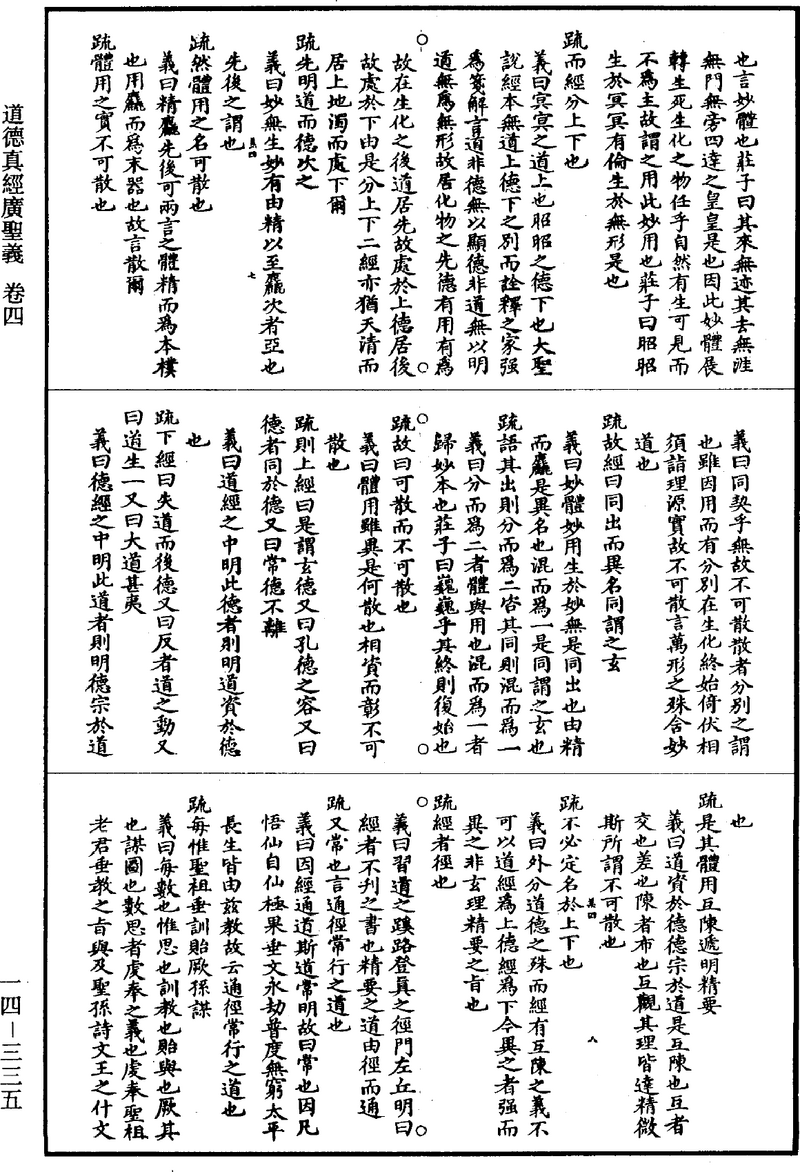 也言妙體也莊子曰其來無迹其去無涯
無門無旁四達之皇皇是也因此妙體展
轉生死生化之物任乎自然有生可見而
不為主故謂之用此妙用也莊子曰昭昭
生於冥冥有倫生於無形是也
疏而經分上下也
義曰冥冥之道上也昭昭之德下也大聖
說經本無道上德下之別而詮釋之家強
為箋解言道非德無以顯德非道無以明
道無為無形故居化物之先德有用有為
故在生化之後道居先故處於上德居後
故處於下由是分上下二經亦猶天清而
居上地濁而處下爾
疏先明道而德次之
義曰妙無生妙有由精以至麤次者亞也
先後之謂也
疏然體用之名可散也
義曰精麤先後可兩言之體精而為本樸
也用麤而為末器也故言散爾
疏體用之實不可散也
義曰同契乎無故不可散散者分別之謂
也雖因用而有分別在生化終始倚伏相
須請理源實故不可散言萬形之殊舍妙
道也
疏故經曰同出而異名同謂之玄
義曰妙體妙用生於妙無是同出也由精
而麤是異名也混而為一是同謂之玄也
疏語其出則分而為二咨其同則混而為一
義曰分而為二者體與用也混而為一者
歸妙本也莊子曰巍巍乎其終則復始也
疏故曰可散而不可散也
義曰體用雖異是何散也相資而彰不可
散也
疏則上經曰是謂玄德又曰孔德之容又曰
德者同於德又曰常德不離
義曰道經之中明此德者則明道資於德
也
疏下經曰失道而後德又曰反者道之動又
曰道生一又曰大道甚夷
義曰德經之中明此道者則明德宗於道
也
疏是其體用互陳遞明精要
義曰道資於德德宗於道是互陳也互者
交也差也陳者布也互觀其理皆達精微
斯所謂不可散也
疏不必定名於上下也
義曰外分道德之殊而經有互陳之義不
可以道經為上德經為下今異之者強而
異之非玄理精要之旨也
疏經者徑也
義曰習道之蹊路登真之徑門左丘明曰
經者不刋之書也精要之道由徑而通
疏又常也言通徑常行之道也
義曰因經通道斯道常明故曰常也因凡
悟仙自仙極果垂文永劫普度無窮太平
長生皆由茲教故云通徑常行之道也
疏每惟聖祖垂訓貽厥孫謀
義曰每數也惟思也訓教也貽與也厥其
也謀圖也數思者虔奉之義也虔奉聖祖
老君垂教之旨與及聖孫詩文王之什文
道德真經廣聖義 卷四
一四－三三五